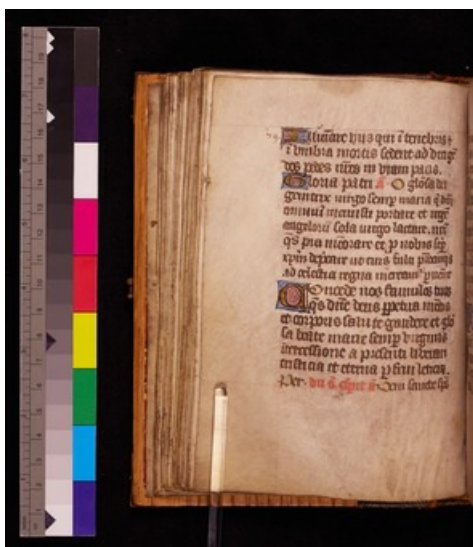 Illuminare hijs qui ī tenebris ⁊
ī vmbra mortis sedent ad dirigē
dos pedes nrōs in viam pacis.
Gloria patri a. O glōsa dei
genitrix virgo semp maria q̄ dnm̄
omniū meruisti portare et regē
angeloꝝ sola virgo lactare, nr̄i
qs̄ pia memorare et p nobis sēp
xpm̄ deprecare
ad celestia regna
Concede nos famulos tuos
qs̄ dn̄e deus ppetua mētis
et corporis salute gaudere et glō
sa beate marie semp virginis
intercessione a presenti liberari
tristicia et eterna pfrui leticia.
Per. Veni sancte sp̄s